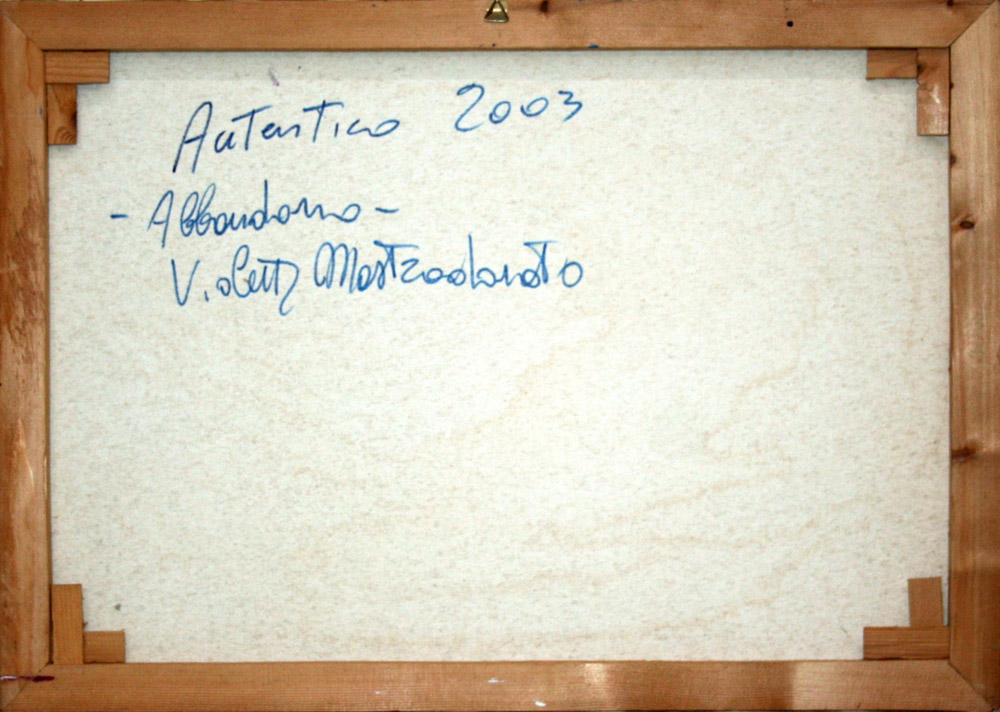 Autentico 2003
- Abbandono -
Violetta Mastrodonato